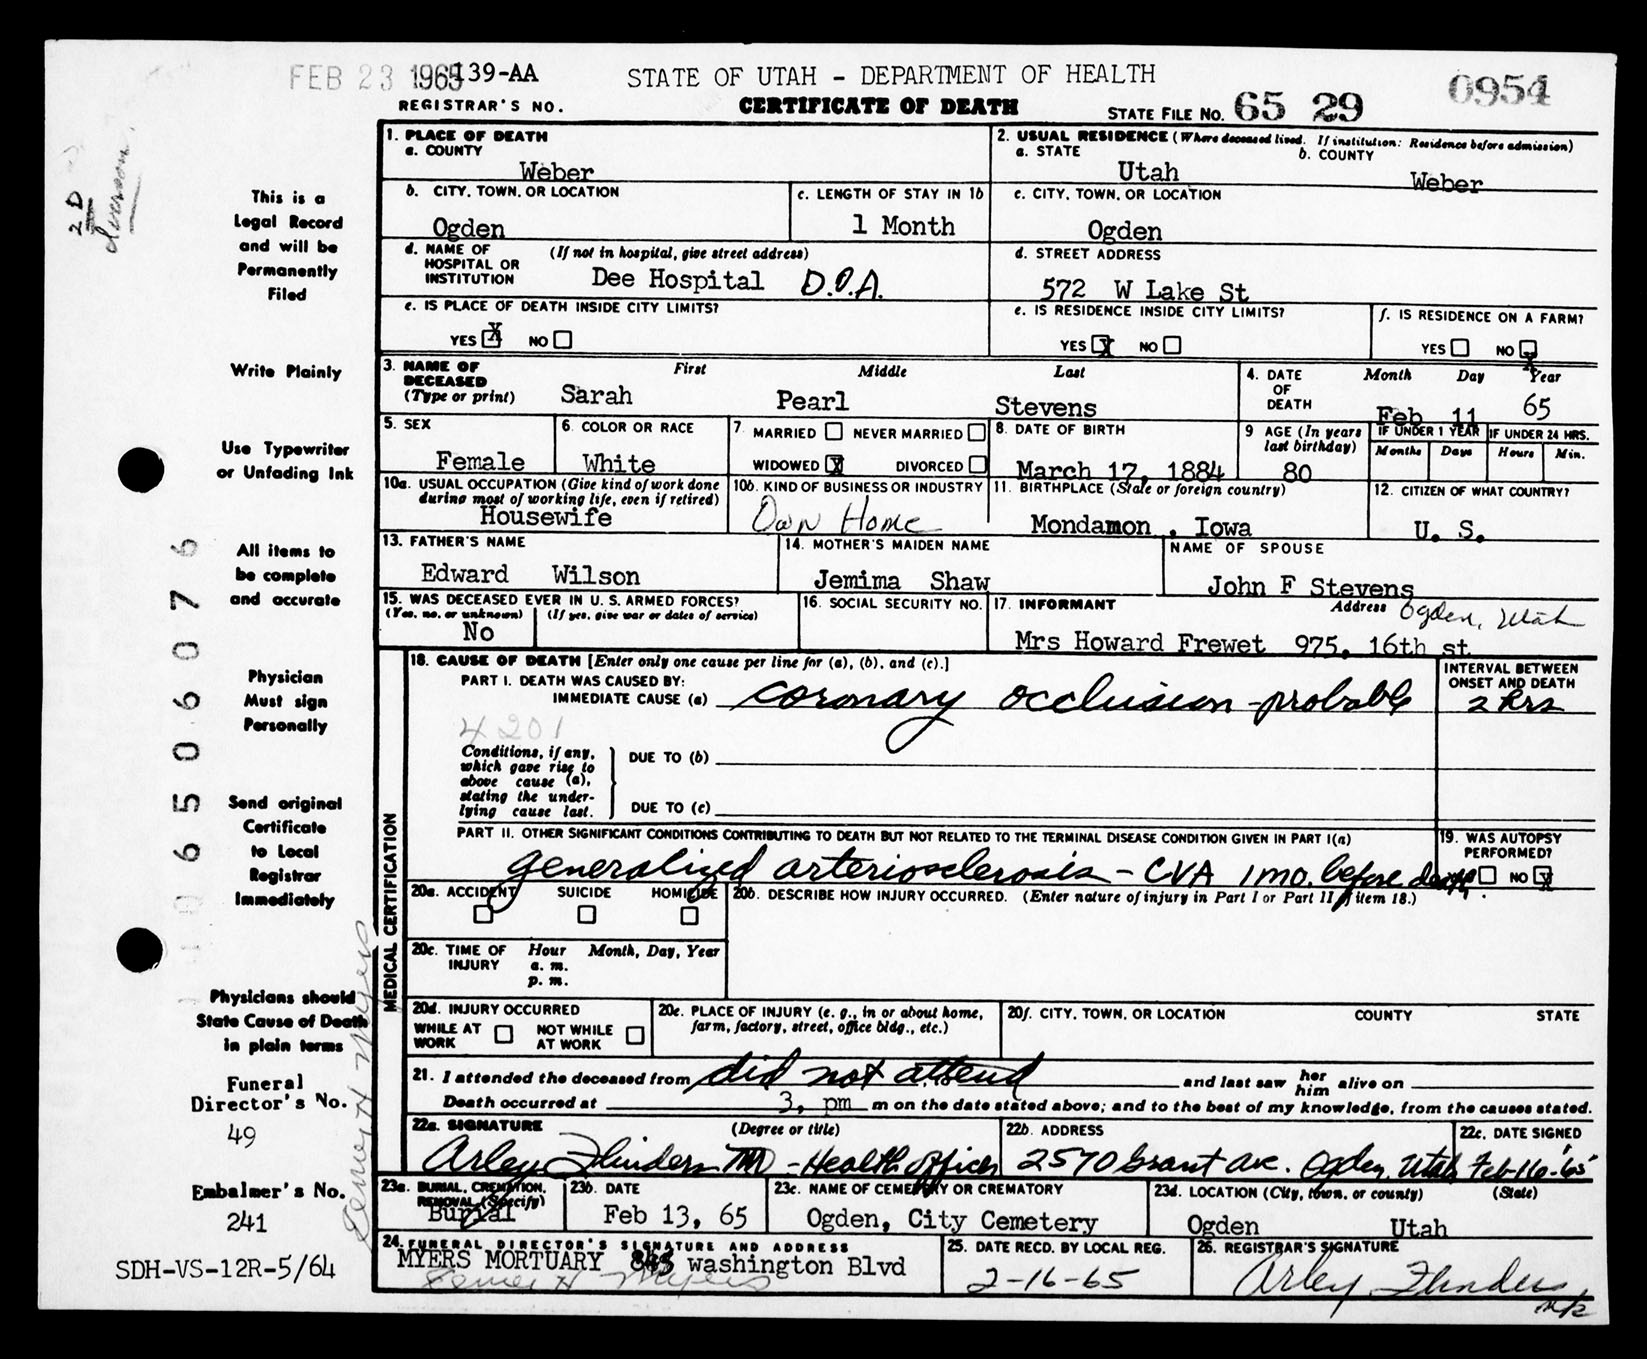 FEB 23 1965 139-AA STATE OF UTAH - DEPARTMENT OF HEALTH 0954
REGISTRAR'S NO. CERTIFICATE OF DEATH STATE FILE NO. 65 29
2D
This is a
Legal Record
and will be
Permanently
Filed
Write Plainly
Use Typewriter
or Unfading Ink
All items to
be complete
and accurate
Physician
Must sign
Personally
Send original
Certificate
to Local
Registrar
Immediately
Physicians should
State Cause of Death
in plain terms
Funeral
Director's No.
49
Embalmer's No.
241
SDH-VS-12R-5/64
1. PLACE OF DEATH
a. COUNTY
Weber
2. USUAL RESIDENCE (Where deceased lived. If institution: Residence before admission)
a. STATE b. COUNTY
Utah Weber
b. CITY, TOWN, OR LOCATION
Ogden
c. LENGTH OF STAY IN 1b
1 Month
c. CITY, TOWN, OR LOCATION
Ogden
d. NAME OF (If not in hospital, give street address)
HOSPITAL OR
INSTITUTION Dee Hospital D.O.A.
d. STREET ADDRESS
572 W Lake St
e. IS PLACE OF DEATH INSIDE CITY LIMITS?
YES X NO
e. IS RESIDENCE INSIDE CITY LIMITS?
YES X NO
f. IS RESIDENCE ON A FARM?
YES NO X
3. NAME OF First Middle Last
DECEASED
(Type or print) Sarah Pearl Stevens
4. DATE Month Day Year
OF
DEATH Feb 11 65
5. SEX
Female
6. COLOR OR RACE
White
7. MARRIED NEVER MARRIED
WIDOWED X DIVORCED
8. DATE OF BIRTH
March 17, 1884
9 AGE (In years
last birthday)
80
IF UNDER 1 YEAR IF UNDER 24 HRS.
Months Days Hours Min.
10a. USUAL OCCUPATION (Give kind of work done
during most of working life, even if retired)
Housewife
10b. KIND OF BUSINESS OR INDUSTRY
Own Home
11. BIRTHPLACE (State or foreign country)
Mondamon , Iowa
12. CITIZEN OF WHAT COUNTRY?
U. S.
13. FATHER'S NAME
Edward Wilson
14. MOTHER'S MAIDEN NAME
Jemima Shaw
NAME OF SPOUSE
John F Stevens
15. WAS DECEASED EVER IN U. S. ARMED FORCES?
(Yes, no, or unknown) (If yes, give war or dates of service)
No
16. SOCIAL SECURITY NO.
17. INFORMANT Address Ogden, Utah
Mrs Howard Frewet 975, 16th st
MEDICAL CERTIFICATION
18. CAUSE OF DEATH [Enter only one cause per line for (a), (b), and (c).]
INTERVAL BETWEEN
ONSET AND DEATH
PART I. DEATH WAS CAUSED BY:
IMMEDIATE CAUSE (a) coronary occlusion - probable 2 hrs
4201
Conditions, if any,
which gave rise to
above cause (a),
stating the under-
lying cause last.
DUE TO (b)
DUE TO (c)
PART II. OTHER SIGNIFICANT CONDITIONS CONTRIBUTING TO DEATH BUT NOT RELATED TO THE TERMINAL DISEASE CONDITION GIVEN IN PART I(a)
generalized arteriosclerosis - CVA 1 mo. before death
19. WAS AUTOPSY
PERFORMED?
NO X
20a. ACCIDENT SUICIDE HOMICIDE
20b. DESCRIBE HOW INJURY OCCURRED. (Enter nature of injury in Part I or Part II of item 18.)
20c. TIME OF Hour Month, Day, Year
INJURY a. m.
p. m.
20d. INJURY OCCURRED
WHILE AT NOT WHILE
WORK AT WORK
20e. PLACE OF INJURY (e. g., in or about home,
farm, factory, street, office bldg., etc.)
20f. CITY, TOWN, OR LOCATION COUNTY STATE
21. I attended the deceased from did not attend and last saw her him alive on
Death occurred at 3, pm m on the date stated above; and to the best of my knowledge, from the causes stated.
22a. SIGNATURE (Degree or title)
Arley Flinders MD - Health Officer
22b. ADDRESS
2570 Grant Ave. Ogden, Utah
22c. DATE SIGNED
Feb-16-'65
23a. BURIAL, CREMATION,
REMOVAL (Specify)
Burial
23b. DATE
Feb 13, 65
23c. NAME OF CEMETERY OR CREMATORY
Ogden, City Cemetery
23d. LOCATION (City, town, or county) (State)
Ogden Utah
24. FUNERAL DIRECTOR'S SIGNATURE AND ADDRESS
MYERS MORTUARY 845 Washington Blvd
25. DATE RECD. BY LOCAL REG.
2-16-65
26. REGISTRAR'S SIGNATURE
Arley Flinders